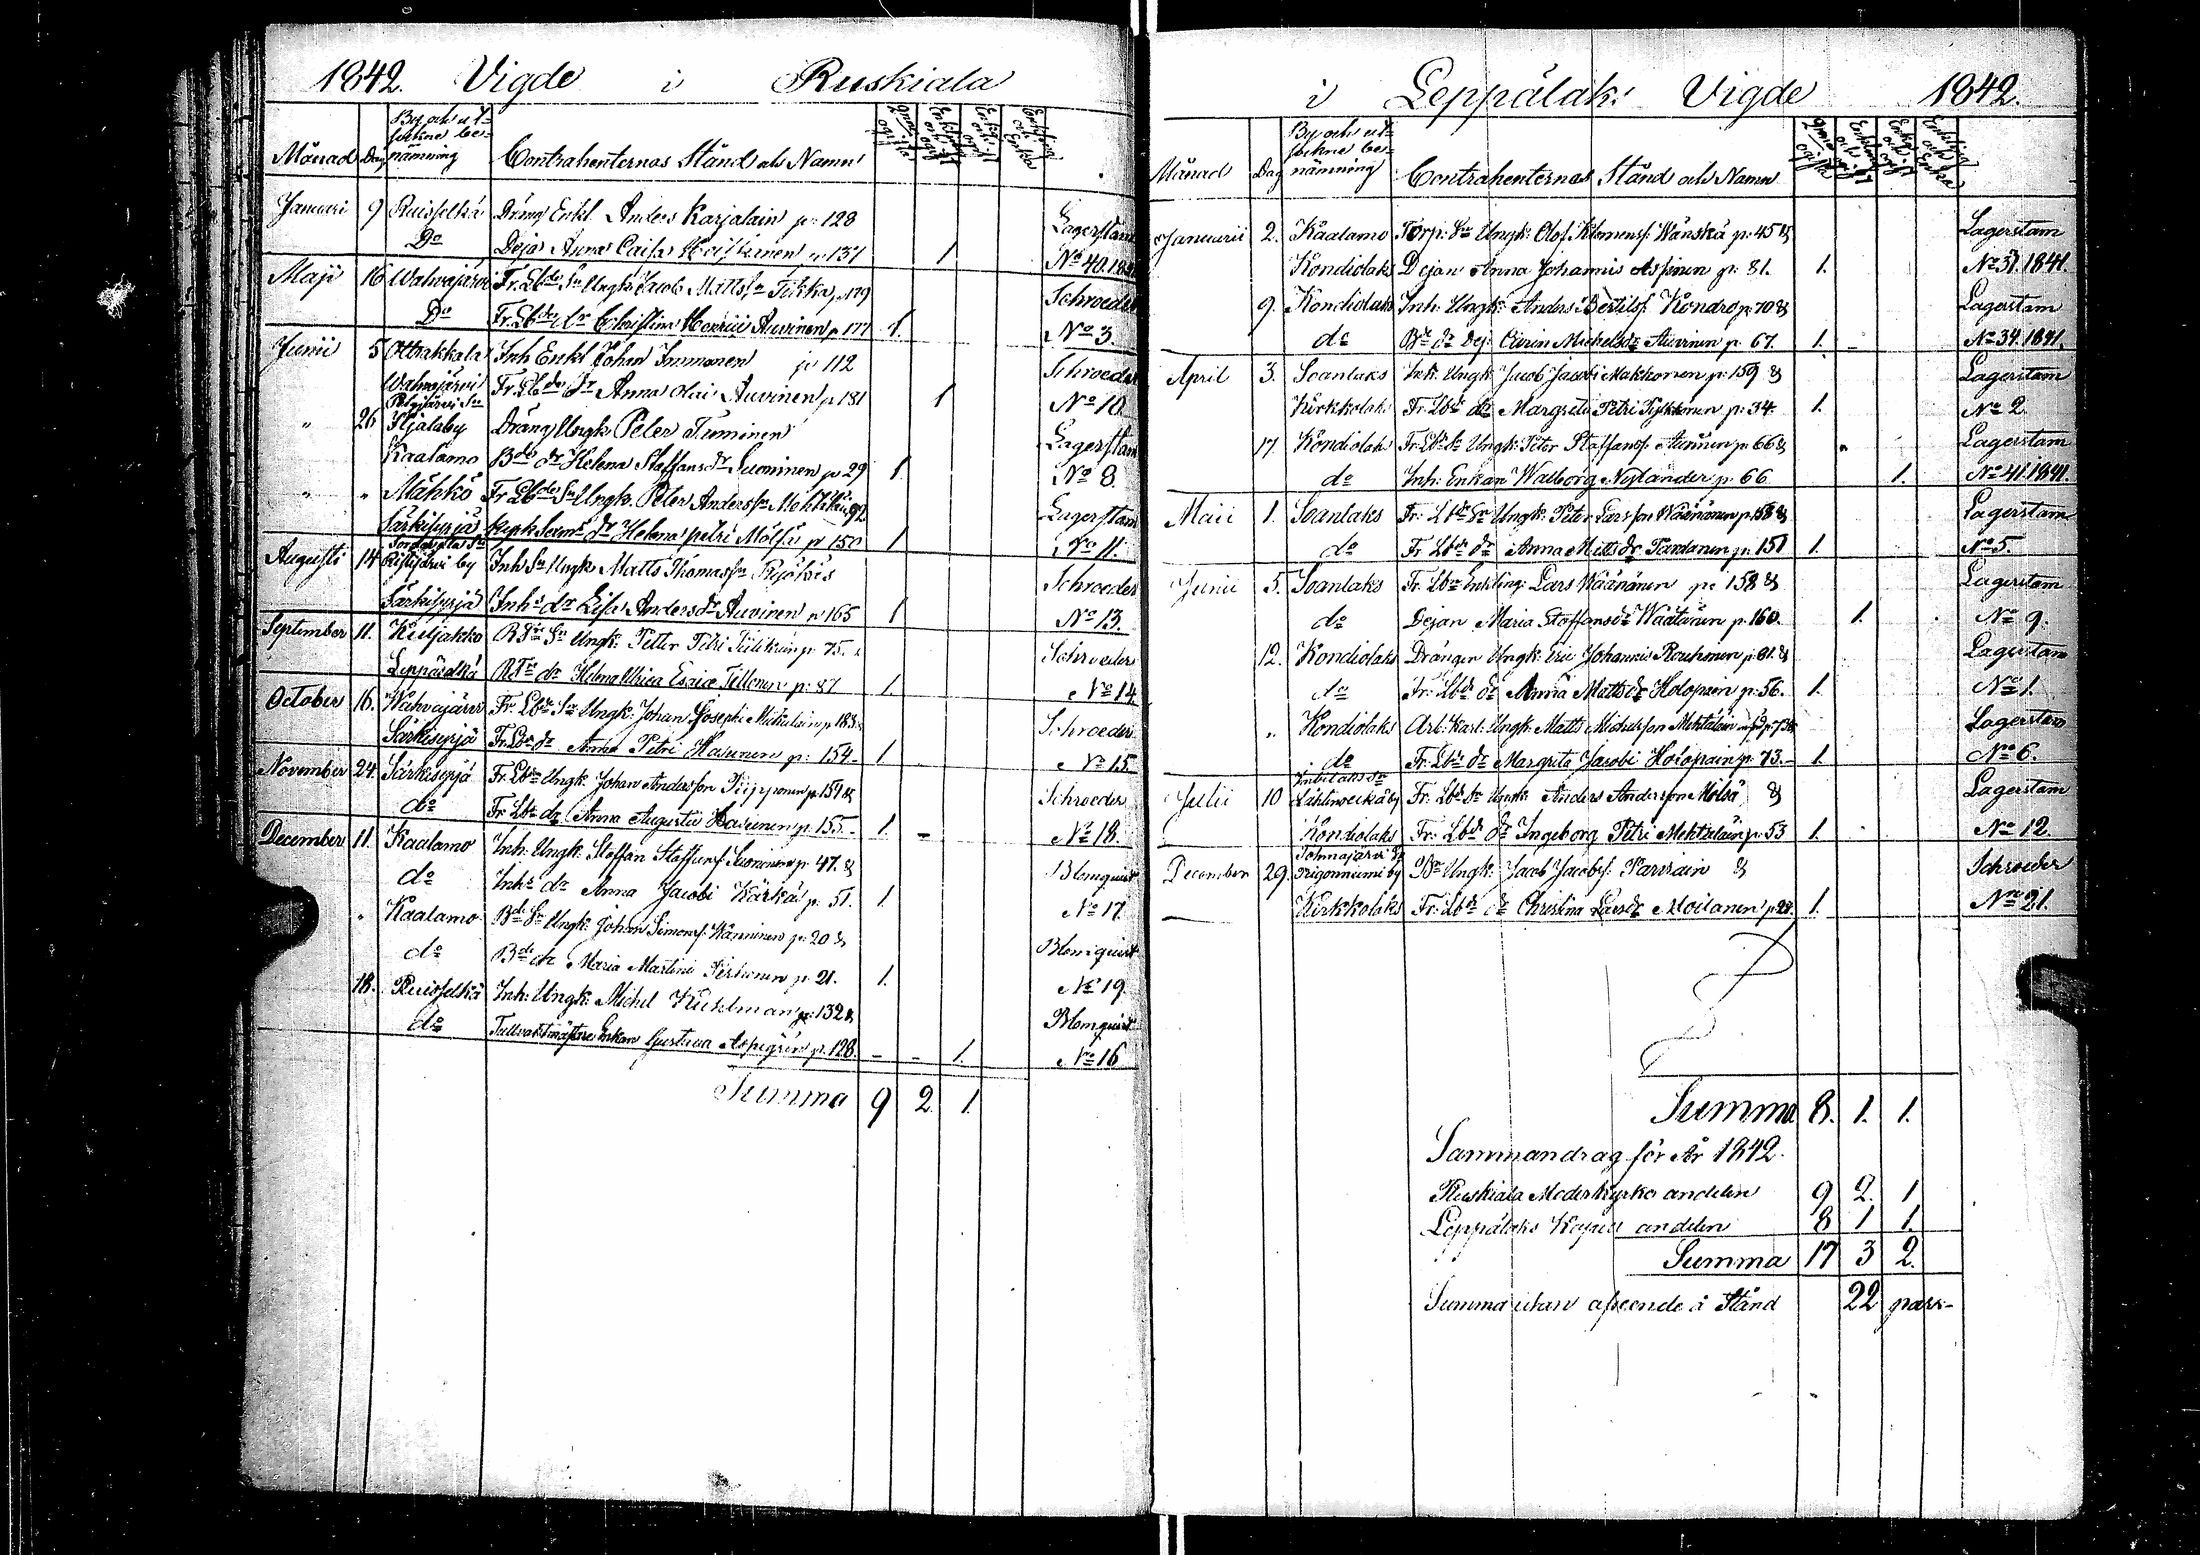 1842. Vigde i Ruskiala
Månad Dag By och ut- sockne be- nämning Contrahenternas Stånd och Namn
Januari 9 Ruisselkä Dräng Enkl. Anders Karjalain p: 128 Lagerstam
Do Dejo Anna Caisa p 131 1 No 40.
Maji 16 Wahvajärvi Fr. Lbde Sn Ungk: Jacob Matts Sn Tikka p. 179 Schroeder
Do Fr. Lbde dr Christina Henrici Auvinen p 177 1. No 3.
Junii 5 Ottrakkala Inh Enkl Johan Immonen p 112 Schroeder
Wahvajärvi Fr. Lbde dr Anna Olai Auvinen p 181 1 No 10.
" 26 by Dräng Ungk Peter Tuminen Lagerstam
Kaalamo Bde dr Helena Staffans dr Suominen p 29 1. No 8.
" " Mähkö Fr Lbde Sn Ungk. Peter Anders Sn p 92 Lagerstam
Särkisyrjä dr Helena Petri Mölsä p 150 1 No 11.
Augusti 14 by Inh Sn Ungk Matts Thomas Sn Schroeder
Särkisyrjä Inhs dr Lisa Anders dr Auvinen p 165 1 No 13.
September 11. Kuljakko Sn Ungk: Petter Petri p: 75. Schroeder
Leppäselkä dr Helena Ulrica Esaiæ p: 87 1. No 14
October 16. Wahvajärvi Fr. Lbde Sn Ungk: Johan Josephi p 183 Schroeder
Särkisyrjä Fr. Lbde dr Anna Petri Hasunen p: 154 1 No 15
November 24. Särkisyrjä Fr. Lbde Ungk: Johan Andersson Piipponen p: 151 & Schroeder
do Fr Lbde dr Anna Augusta Hasunen p: 155 1. - No 18.
December 11. Kaalamo Inh: Ungk: Staffan Staffansf. Suominen p: 47. & Blomquist
do Inhs dr Anna Jacobi Kärkä p: 51. 1 No 17
" Kaalamo Bde Sn Ungk: Johan Simonsf. Känninen p: 20 & Blomquist
do Bde dr Maria Martini p: 21. 1. No 19
18. Ruisselkä Inh: Ungk: Michel p: 132 & Blomquist
do Enkan Gustava Aspegrén p. 128 - - 1. No 16
Summa 9 2. 1.
i Leppälaks Vigde 1842.
Månad Dag By och ut- sockne be- nämning Contrahenternas Stånd och Namn
Januarii 2. Kaalamo Torp: Sn Ungk: Olof Klemensf. Wänskä p: 45 & Lagerstam
Kondiolaks Dejan Anna Johannis Aspinen p: 81. 1. No 37. 1841.
9. Kondiolaks Inh: Ungk: Anders Bertilsf. Kondro p: 70 & Lagerstam
do Bde dr Dej: Carin Michelsdr Auvinen p: 67. 1. - No 34. 1841.
April 3. Soanlaks Inh: Ungk: Jacob Jacobi Makkonen p: 159 & Lagerstam
Kirkkolaks Fr: Lbde dr Margreta Petri Pykkönen p: 34. 1. No 2
17. Kondiolaks Fr: Lbde Sn Ungk: Peter Staffansf. Auvinen p: 66 & Lagerstam
do Inh: Enkan Walborg Nylander p: 66 1. No 41. 1841.
Maii 1. Soanlaks Fr: Lbde Sn Ungk: Peter Larsson Wäänänen p: 158 & Lagerstam
do Fr Lbde dr Anna Mattsdr Pardanen p: 151 1. No 5.
Junii 5. Soanlaks Fr. Lbde Enkling Lars Wäänänen p: 158 & Lagerstam
do Dejan Maria Staffansdr Wäätänen p. 160. 1. No 9.
12. Kondiolaks Drängen Ungk: Eric Johannis Rouhonen p: 81. & Lagerstam
do Fr: Lbde dr Anna Mattsdr Holopain p: 56. 1. No 1.
" Kondiolaks Arb: Karl: Ungk: Matts Michelsson Mehtälain Lagerstam
do Fr: Lbde dr Margreta Jacobi Holopain p: 73. - 1. No 6.
Julii 10 by Fr: Lbde Sn Ungk: Anders Andersson Mölsä & Lagerstam
Kondiolaks Fr: Lbde dr Ingeborg Petri Mehtälain p: 53 1. No 12.
December 29. Tohmajärvi Sn by Bde Ungk: Jacob Jacobsf. Parviain & Schroeder
Kirkkolaks Fr: Lbde dr Christina Larsdr Moilanen p: 28. 1. No 21.
Summa 8. 1. 1.
Sammandrag för År 1842.
Ruskiala Moderkyrko andelen 9 2. 1
Leppälaks Kapell andelen 8 1 1.
Summa 17 3 2.
Summa utan afseende å Stånd 22 par-